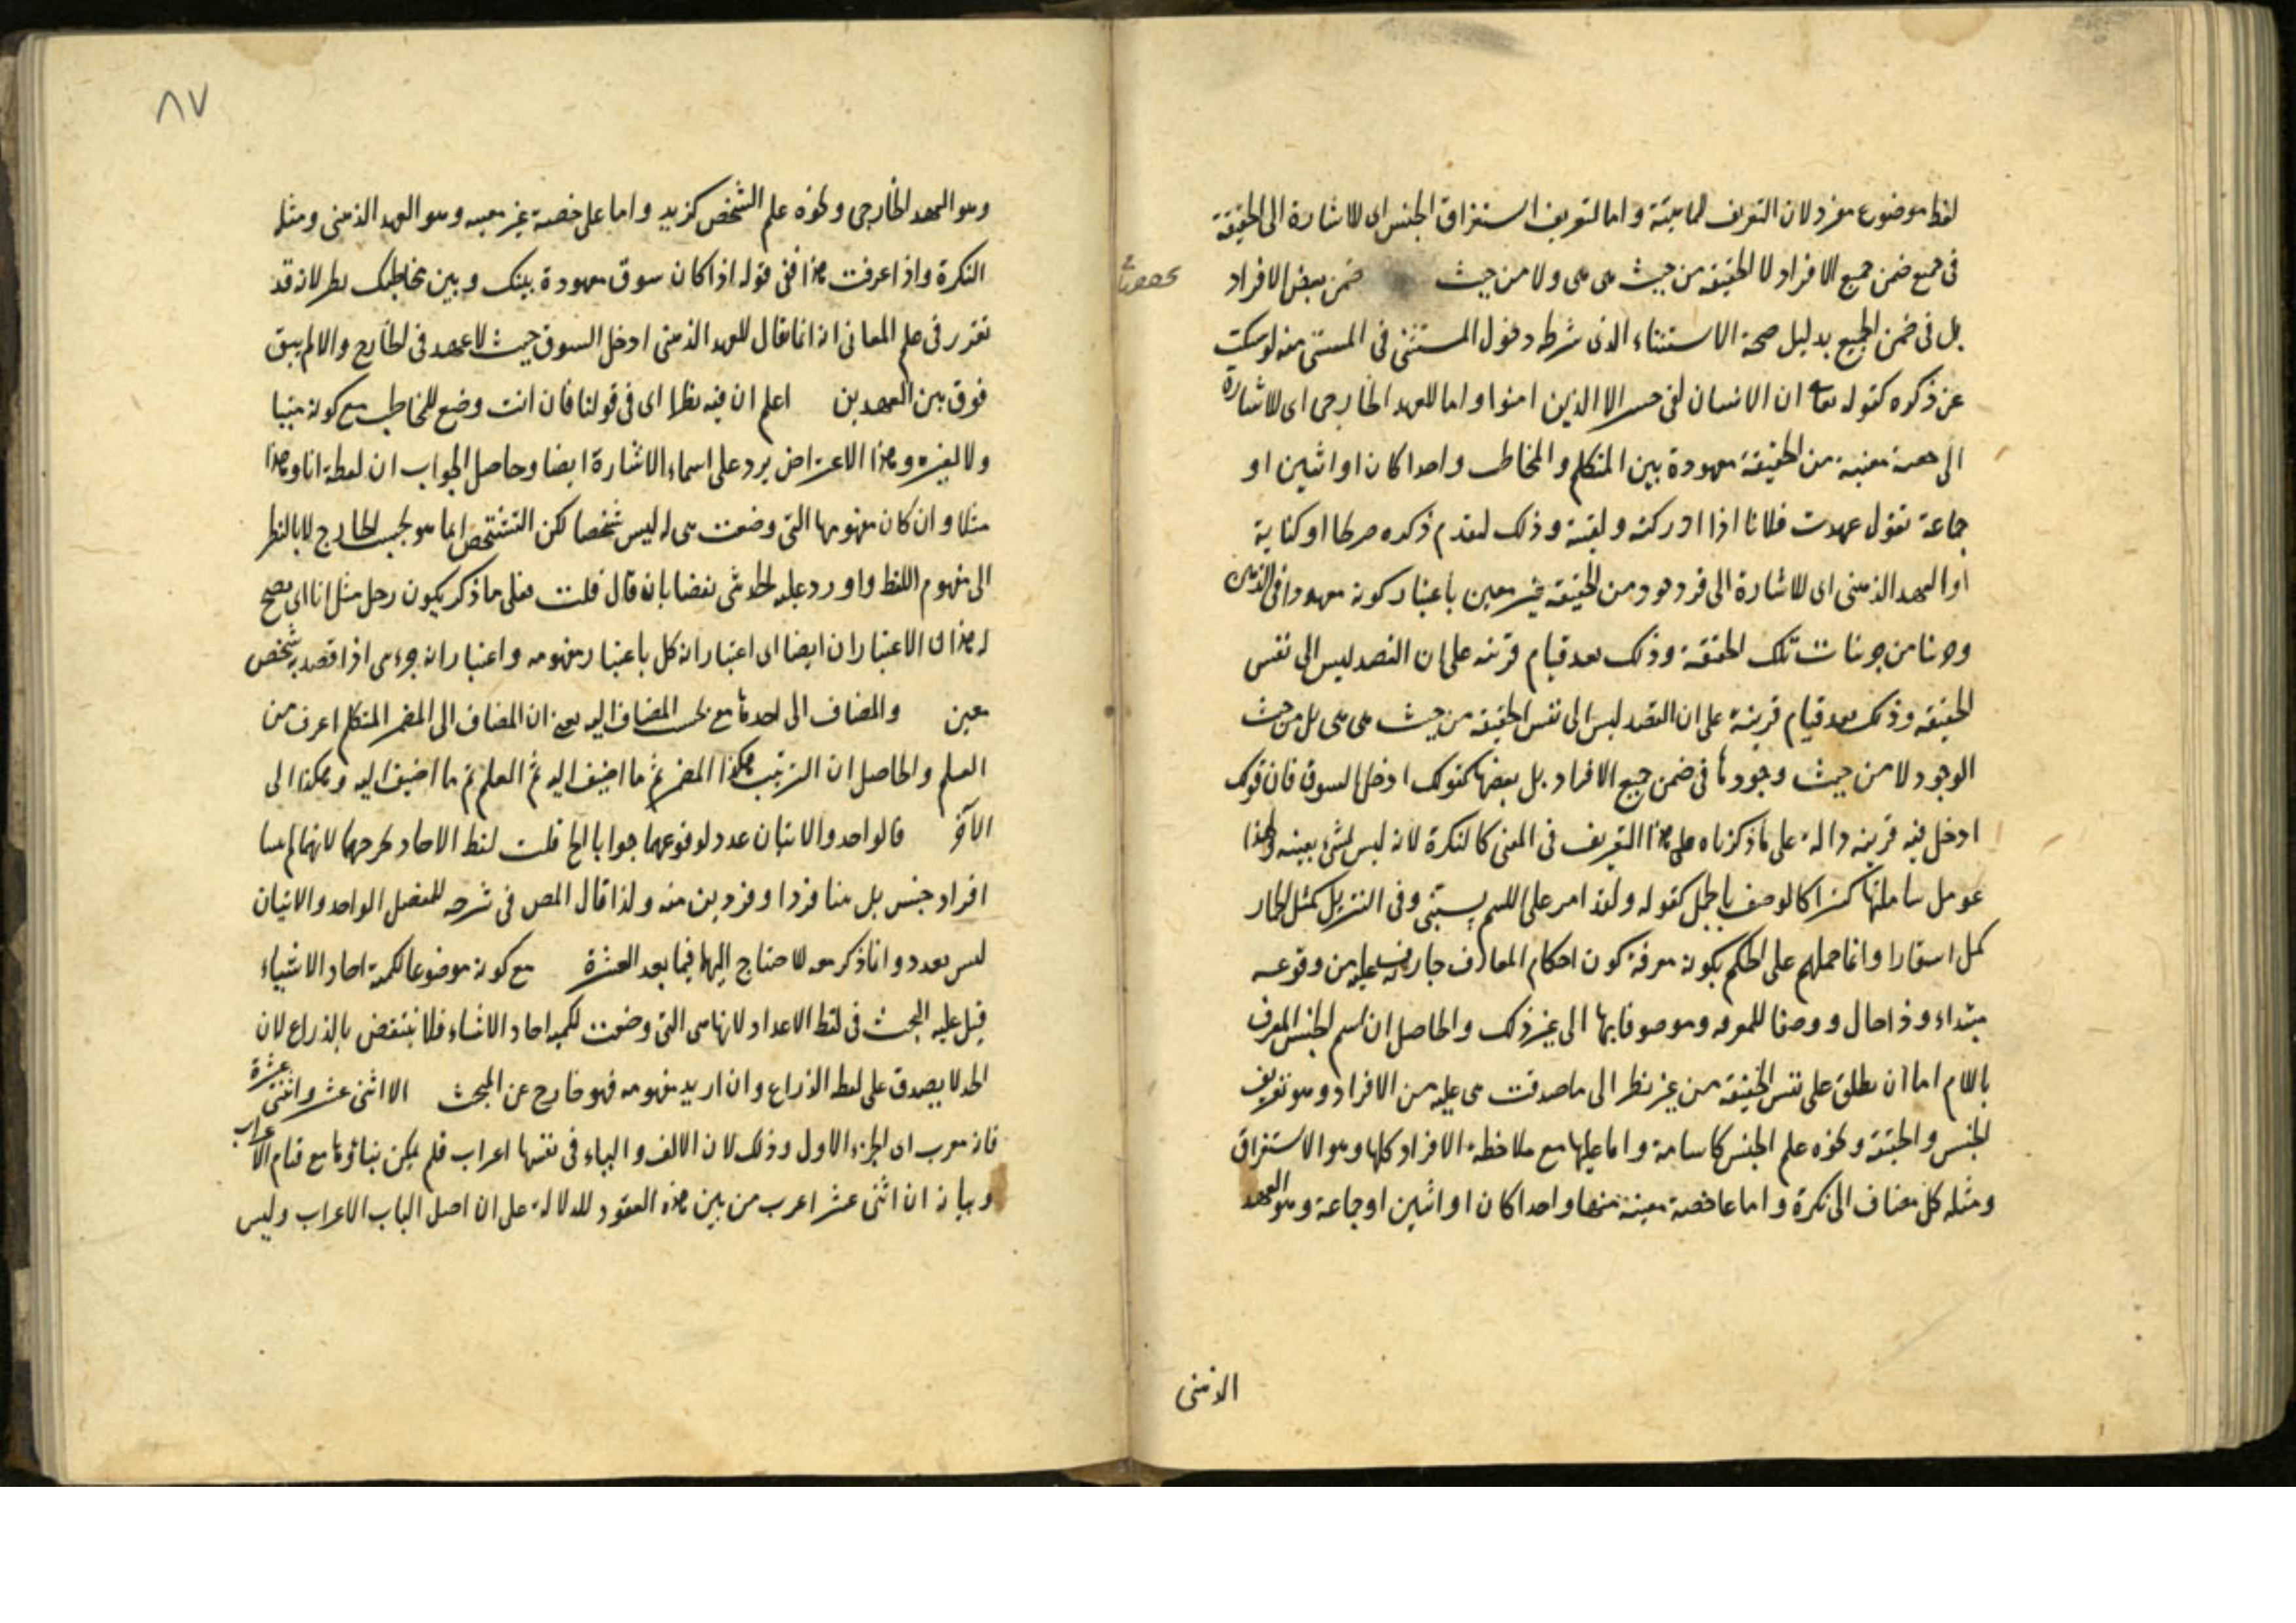 لفظ موضوع مفرد لان التعريف للماهية واما لتعريف استغراق الجنس اى للاشارة الى الحقيقة
فى جميع ضمن جميع الافراد لا الحقيقة من حيث هى هى ولا من حيث ضمن بعض الافراد
بل فى ضمن الجميع بدليل صحة الاستثناء الذى شرطه دخول المستثنى فى المستثنى منه لو سكت
عن ذكره كقوله تعالى ان الانسان لفى خسر الا الذين امنوا واما للعهد الخارجى اى للاشارة
الى حصة معينة من الحقيقة معهودة بين المتكلم والمخاطب واحدا كان او اثنين او
جماعة تقول عهدت فلانا اذا ادركته ولقيته وذلك لتقدم ذكره صريحا او كناية
او للعهد الذهنى اى للاشارة الى فرد موجود من الحقيقة غير معين باعتبار كونه معهودا فى الذهن
وجزئيا من جزئيات تلك الحقيقة وذلك بعد قيام قرينة على ان القصد ليس الى نفس
الحقيقة وذلك بعد قيام قرينة على ان القصد ليس الى نفس الحقيقة من حيث هى هى بل من حيث
الوجود لا من حيث وجودها فى ضمن جميع الافراد بل بعضها كقولك ادخل السوق فان قولك
ادخل فيه قرينة دالة على ما ذكرناه على هذا التعريف فى المعنى كالنكرة لانه ليس لشئ بعينه ولهذا
عومل معاملتها كثيرا كالوصف بالجمل كقوله ولقد امر على اللئيم يسبنى وفى التنزيل كمثل الحمار
يحمل اسفارا وانما حملهم على الحكم بكونه معرفة كون احكام المعارف جارية عليه من وقوعه
مبتداء وذا حال ووصفا للمعرفة وموصوفا بها الى غير ذلك والحاصل ان اسم الجنس المعرف
باللام اما ان يطلق على نفس الحقيقة من غير نظر الى ما صدقت هى عليه من الافراد وهو تعريف
الجنس والحقيقة ونحوه علم الجنس كاسامة واما عليها مع ملاحظة الافراد كلها وهو الاستغراق
ومثله كل مضاف الى نكرة واما على حصة معينة منها واحدا كان او اثنين او جماعة وهو العهد
الذهنى
٨٧
وهو العهد الخارجى ونحوه علم الشخص كزيد واما على حصة غير معينة وهو العهد الذهنى ومثله
النكرة واذا عرفت هذا ففى قوله اذا كان سوق معهودة بينك وبين مخاطبك نظر لانه قد
تقرر فى علم المعانى انه انما يقال للعهد الذهنى ادخل السوق حيث لا عهد فى الخارج والا لم يبق
فرق بين العهدين اعلم ان فيه نظرا اى فى قولنا فان انت وضع للمخاطب مع كونه مبنيا
ولا لغيره وهذا الاعتراض يرد على اسماء الاشارة ايضا وحاصل الجواب ان لفظة انا وهذا
مثلا وان كان مفهومها التى وضعت هى له ليس شخصا لكن التشخص انما هو بحسب الخارج لا بالنظر
الى مفهوم اللفظ واورد عليه الحدثى نقضا بان قال قلت فعلى ما ذكر يكون رجل مثل انا اى يصح
له هذان الاعتباران ايضا اى اعتبار انه كلى باعتبار مفهومه واعتبار انه جزئى اذا قصد به شخص
معين والمضاف الى احدها مع بحسب المضاف اليه يعنى ان المضاف الى المضمر المتكلم اعرف من
العلم والحاصل ان الترتيب هكذا المضمر ثم ما اضيف اليه ثم العلم ثم ما اضيف اليه وهكذا الى
الآخر قالوا حد والاثنان عدد لوقوعهما جوابا الخ قلت لفظ الاحاد يخرجهما لانهما لم يبينا
افراد جنس بل بينا فردا وفردين منه ولذا قال المص فى شرحه للمفصل الواحد والاثنان
ليس بعدد وانما ذكر معه للاحتياج اليهما فيما بعد العشرة مع كونه موضوعا لكمية احاد الاشياء
قيل عليه البحث فى لفظ الاعداد لانها هى التى وضعت لكمية احاد الاشياء فلا ينتقض بالذراع لان
الحد لا يصدق على لفظ الذراع وان اريد مفهومه فهو خارج عن المبحث الا اثنى عشر واثنتى عشرة
فانه معرب اى الجزء الاول وذلك لان الالف والياء فى نفسها اعراب فلم يمكن بنائها مع قيام الاعراب
وبيانه ان اثنى عشر اعرب من بين هذه العقود للدلالة على ان اصل الباب الاعراب وليس